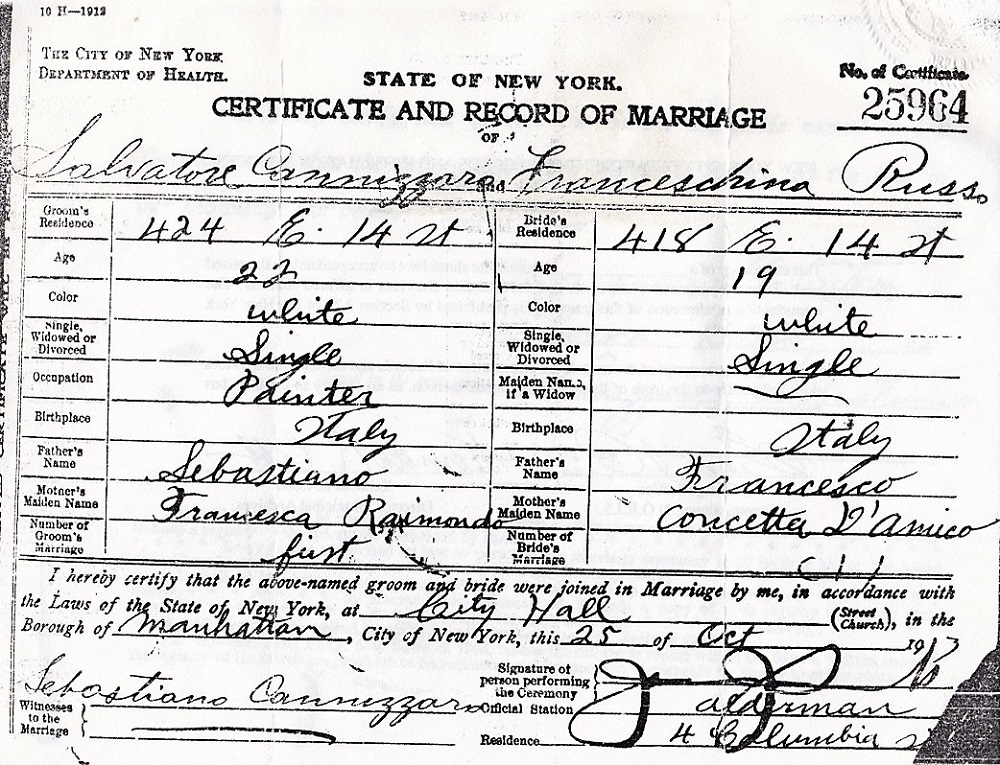 10 H—1912
THE CITY OF NEW YORK
DEPARTMENT OF HEALTH.
STATE OF NEW YORK.
No. of Certificate
CERTIFICATE AND RECORD OF MARRIAGE
25964
OF
Salvatore Cannizzaro and Franceschina Russo
Groom's Residence 424 E. 14 st Bride's Residence 418 E. 14 st
Age 23 Age 19
Color white Color white
Single, Widowed or Divorced Single Single, Widowed or Divorced Single
Occupation Painter Maiden Name, if a Widow
Birthplace Italy Birthplace Italy
Father's Name Sebastiano Father's Name Francesco
Mother's Maiden Name Francesca Raimondo Mother's Maiden Name Concetta D'Amico
Number of Groom's Marriage first Number of Bride's Marriage
I hereby certify that the above-named groom and bride were joined in Marriage by me, in accordance with
the Laws of the State of New York, at City Hall (Street Church), in the
Borough of Manhattan, City of New York, this 25 of Oct 1913
Signature of person performing the Ceremony
Sebastiano Cannizzaro Official Station alderman
Witnesses to the Marriage
Residence 4 Columbia